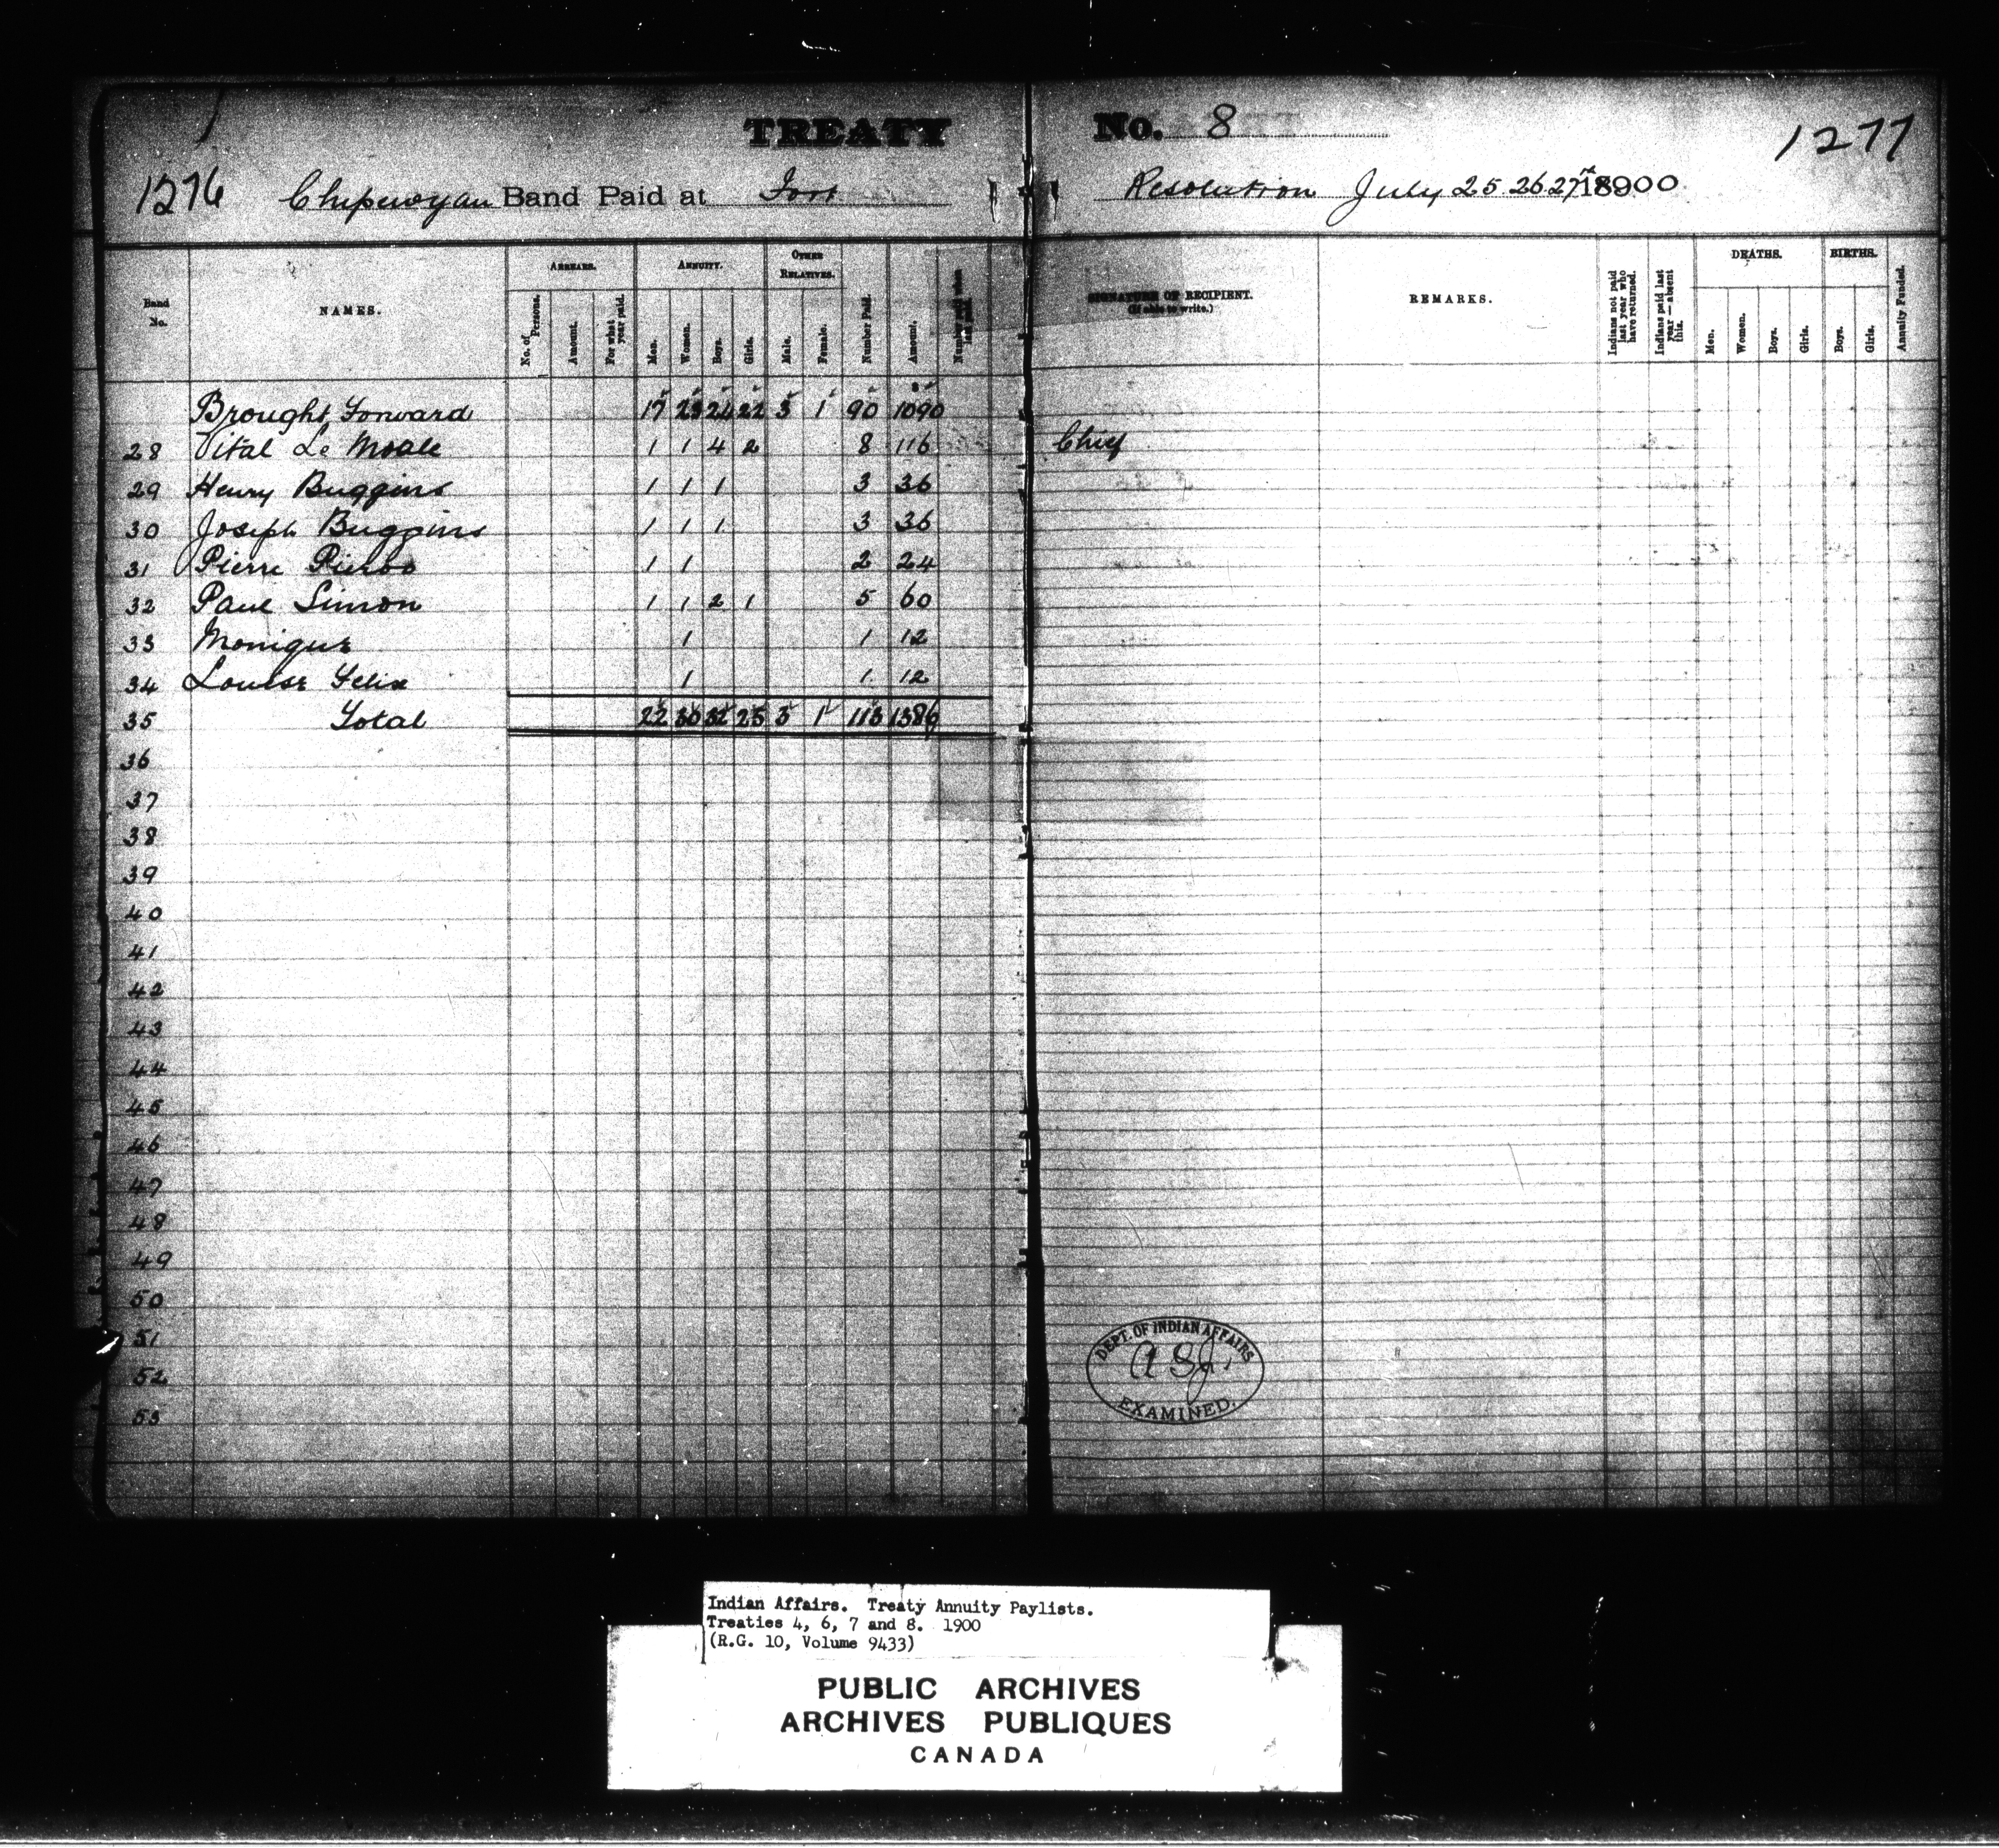 TREATY No. 8
1276 Chipewyan Band Paid at Fort Resolution July 25. 26. 27th 18900 1277
Band No. NAMES. ARREARS. No. of Persons. Amount. For what year paid. ANNUITY. Men. Women. Boys. Girls. OTHER RELATIVES. Male. Female. Number Paid. Amount. SIGNATURE OF RECIPIENT. (If able to write.) REMARKS. Indians not paid last year who have returned. Indians paid last year—absent this. DEATHS. Men. Women. Boys. Girls. BIRTHS. Boys. Girls. Annuity Funded.
Brought Forward 17 23 24 22 3 1 90 1090
28 Vital Le Moale 1 1 4 2 8 116 Chief
29 Henry Buggins 1 1 1 3 36
30 Joseph Buggins 1 1 1 3 36
31 Pierre 1 1 2 24
32 Paul Simon 1 1 2 1 5 60
33 Monique 1 1 12
34 Louise Felix 1 1 12
35 Total 22 30 32 25 3 1 113 1386
36
37
38
39
40
41
42
43
44
45
46
47
48
49
50
51
52
53
DEPT. OF INDIAN AFFAIRS
EXAMINED.
Indian Affairs. Treaty Annuity Paylists.
Treaties 4, 6, 7 and 8. 1900
(R.G. 10, Volume 9433)
PUBLIC ARCHIVES
ARCHIVES PUBLIQUES
CANADA